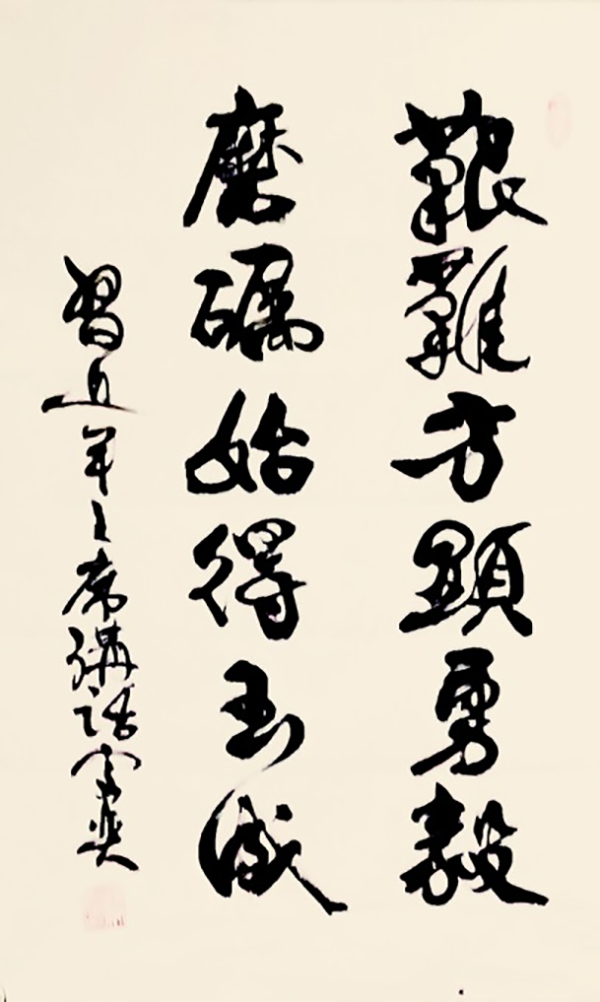 艱難方顯勇毅
磨礪始得玉成
習近平主席講話